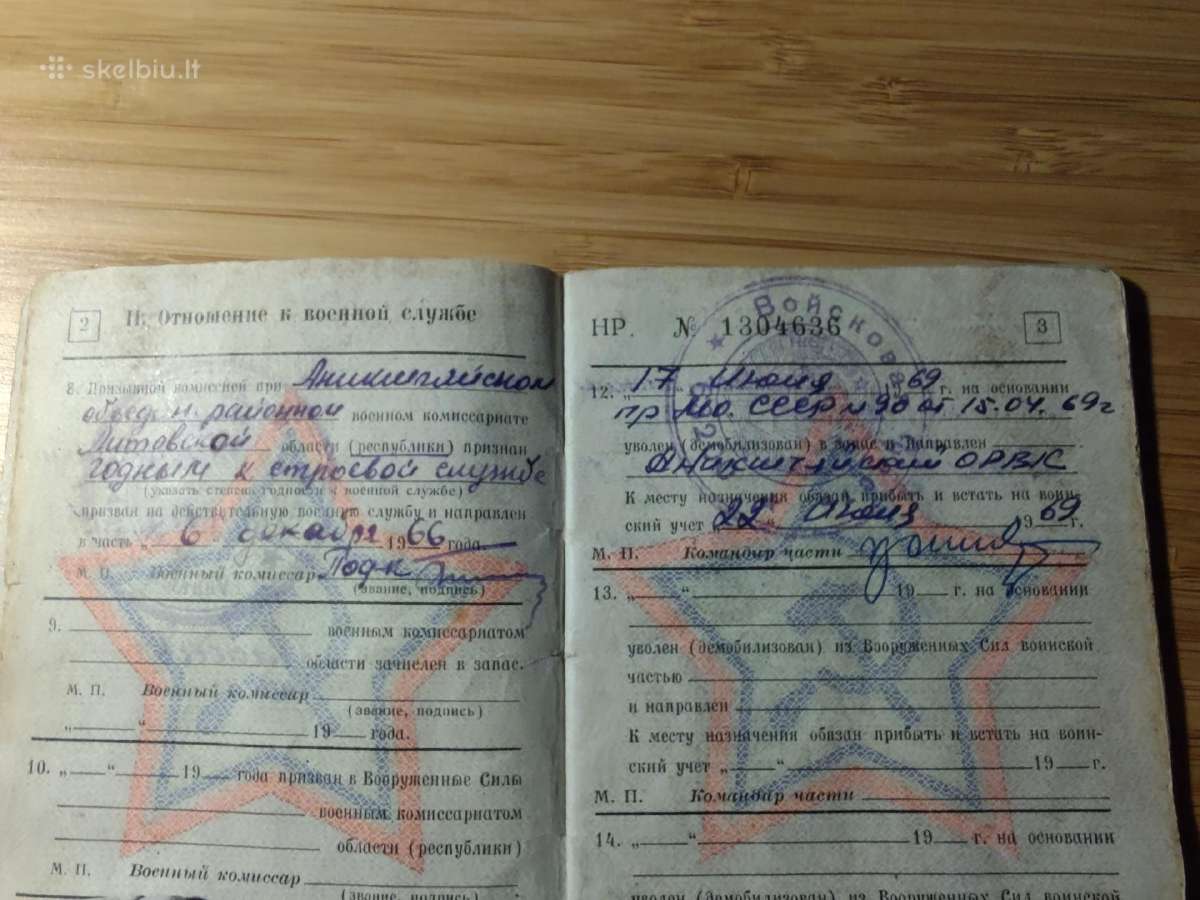 skelbiu.lt
2
II. Отношение к военной службе
8. Призывной комиссией при Аникщяйском
объед н. районной военном комиссариате
Литовской области (республики) признан
годным к строевой службе
(указать степень годности к военной службе)
призван на действительную военную службу и направлен
в часть „ 6 декабря 1966 года.
М. П. Военный комиссар Подк
(звание, подпись)
9. военным комиссариатом
области зачислен в запас.
М. П. Военный комиссар
(звание, подпись)
„ “ 19 года.
10. „ “ 19 года призван в Вооруженные Силы
военным комиссариатом
области (республики)
М. П. Военный комиссар
(звание, подпись)
НР. № 1304636
3
Войскова
12. „17 Июня 1969 г. на основании
пр МО. СССР №90 от 15.04.69г
уволен (демобилизован) в запас и направлен
Аникщяйский ОРВК
К месту назначения обязан прибыть и встать на воин-
ский учет „22“ Июня 1969 г.
М. П. Командир части
13. „ “ 19 г. на основании
уволен (демобилизован) из Вооруженных Сил воинской
частью
и направлен
К месту назначения обязан прибыть и встать на воин-
ский учет „ “ 19 г.
М. П. Командир части
14. „ “ 19 г. на основании
уволен (демобилизован) из Вооруженных Сил воинской